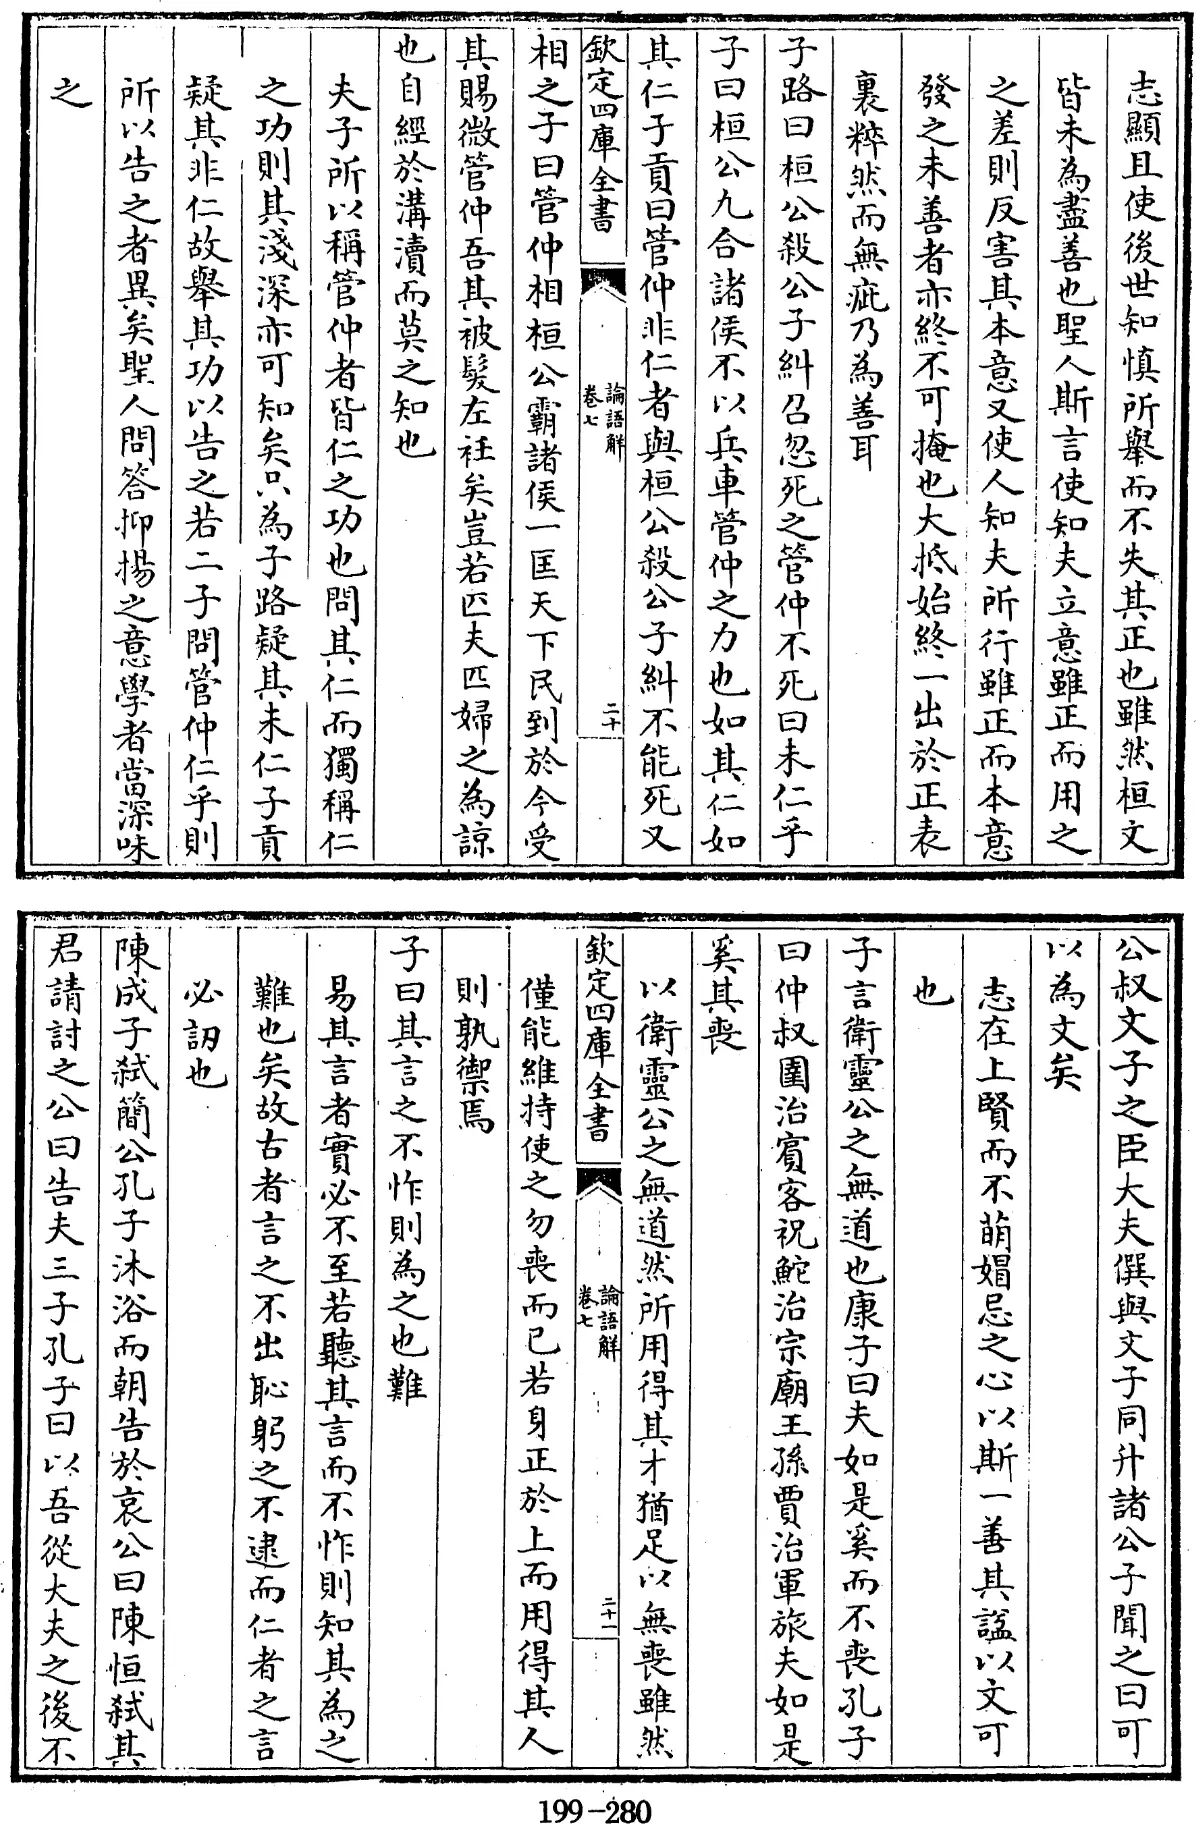 志顯且使後世知慎所舉而不失其正也雖然桓文
皆未為盡善也聖人斯言使知夫立意雖正而用之
之差則反害其本意又使人知夫所行雖正而本意
發之未善者亦終不可掩也大抵始終一出於正表
裏粹然而無疵乃為善耳
子路曰桓公殺公子糾召忽死之管仲不死曰未仁乎
子曰桓公九合諸侯不以兵車管仲之力也如其仁如
其仁子貢曰管仲非仁者與桓公殺公子糾不能死又
欽定四庫全書
論語解
卷七
二十
相之子曰管仲相桓公霸諸侯一匡天下民到於今受
其賜微管仲吾其被髮左衽矣豈若匹夫匹婦之為諒
也自經於溝瀆而莫之知也
夫子所以稱管仲者皆仁之功也問其仁而獨稱仁
之功則其淺深亦可知矣只為子路疑其未仁子貢
疑其非仁故舉其功以告之若二子問管仲仁乎則
所以告之者異矣聖人問答抑揚之意學者當深味
之
公叔文子之臣大夫僎與文子同升諸公子聞之曰可
以為文矣
志在上賢而不萌媢忌之心以斯一善其諡以文可
也
子言衛靈公之無道也康子曰夫如是奚而不喪孔子
曰仲叔圉治賓客祝鮀治宗廟王孫賈治軍旅夫如是
奚其喪
以衛靈公之無道然所用得其才猶足以無喪雖然
欽定四庫全書
論語解
卷七
二十一
僅能維持使之勿喪而已若身正於上而用得其人
則孰禦焉
子曰其言之不怍則為之也難
易其言者實必不至若聽其言而不怍則知其為之
難也矣故古者言之不出恥躬之不逮而仁者之言
必訒也
陳成子弒簡公孔子沐浴而朝告於哀公曰陳恒弒其
君請討之公曰告夫三子孔子曰以吾從大夫之後不
199-280